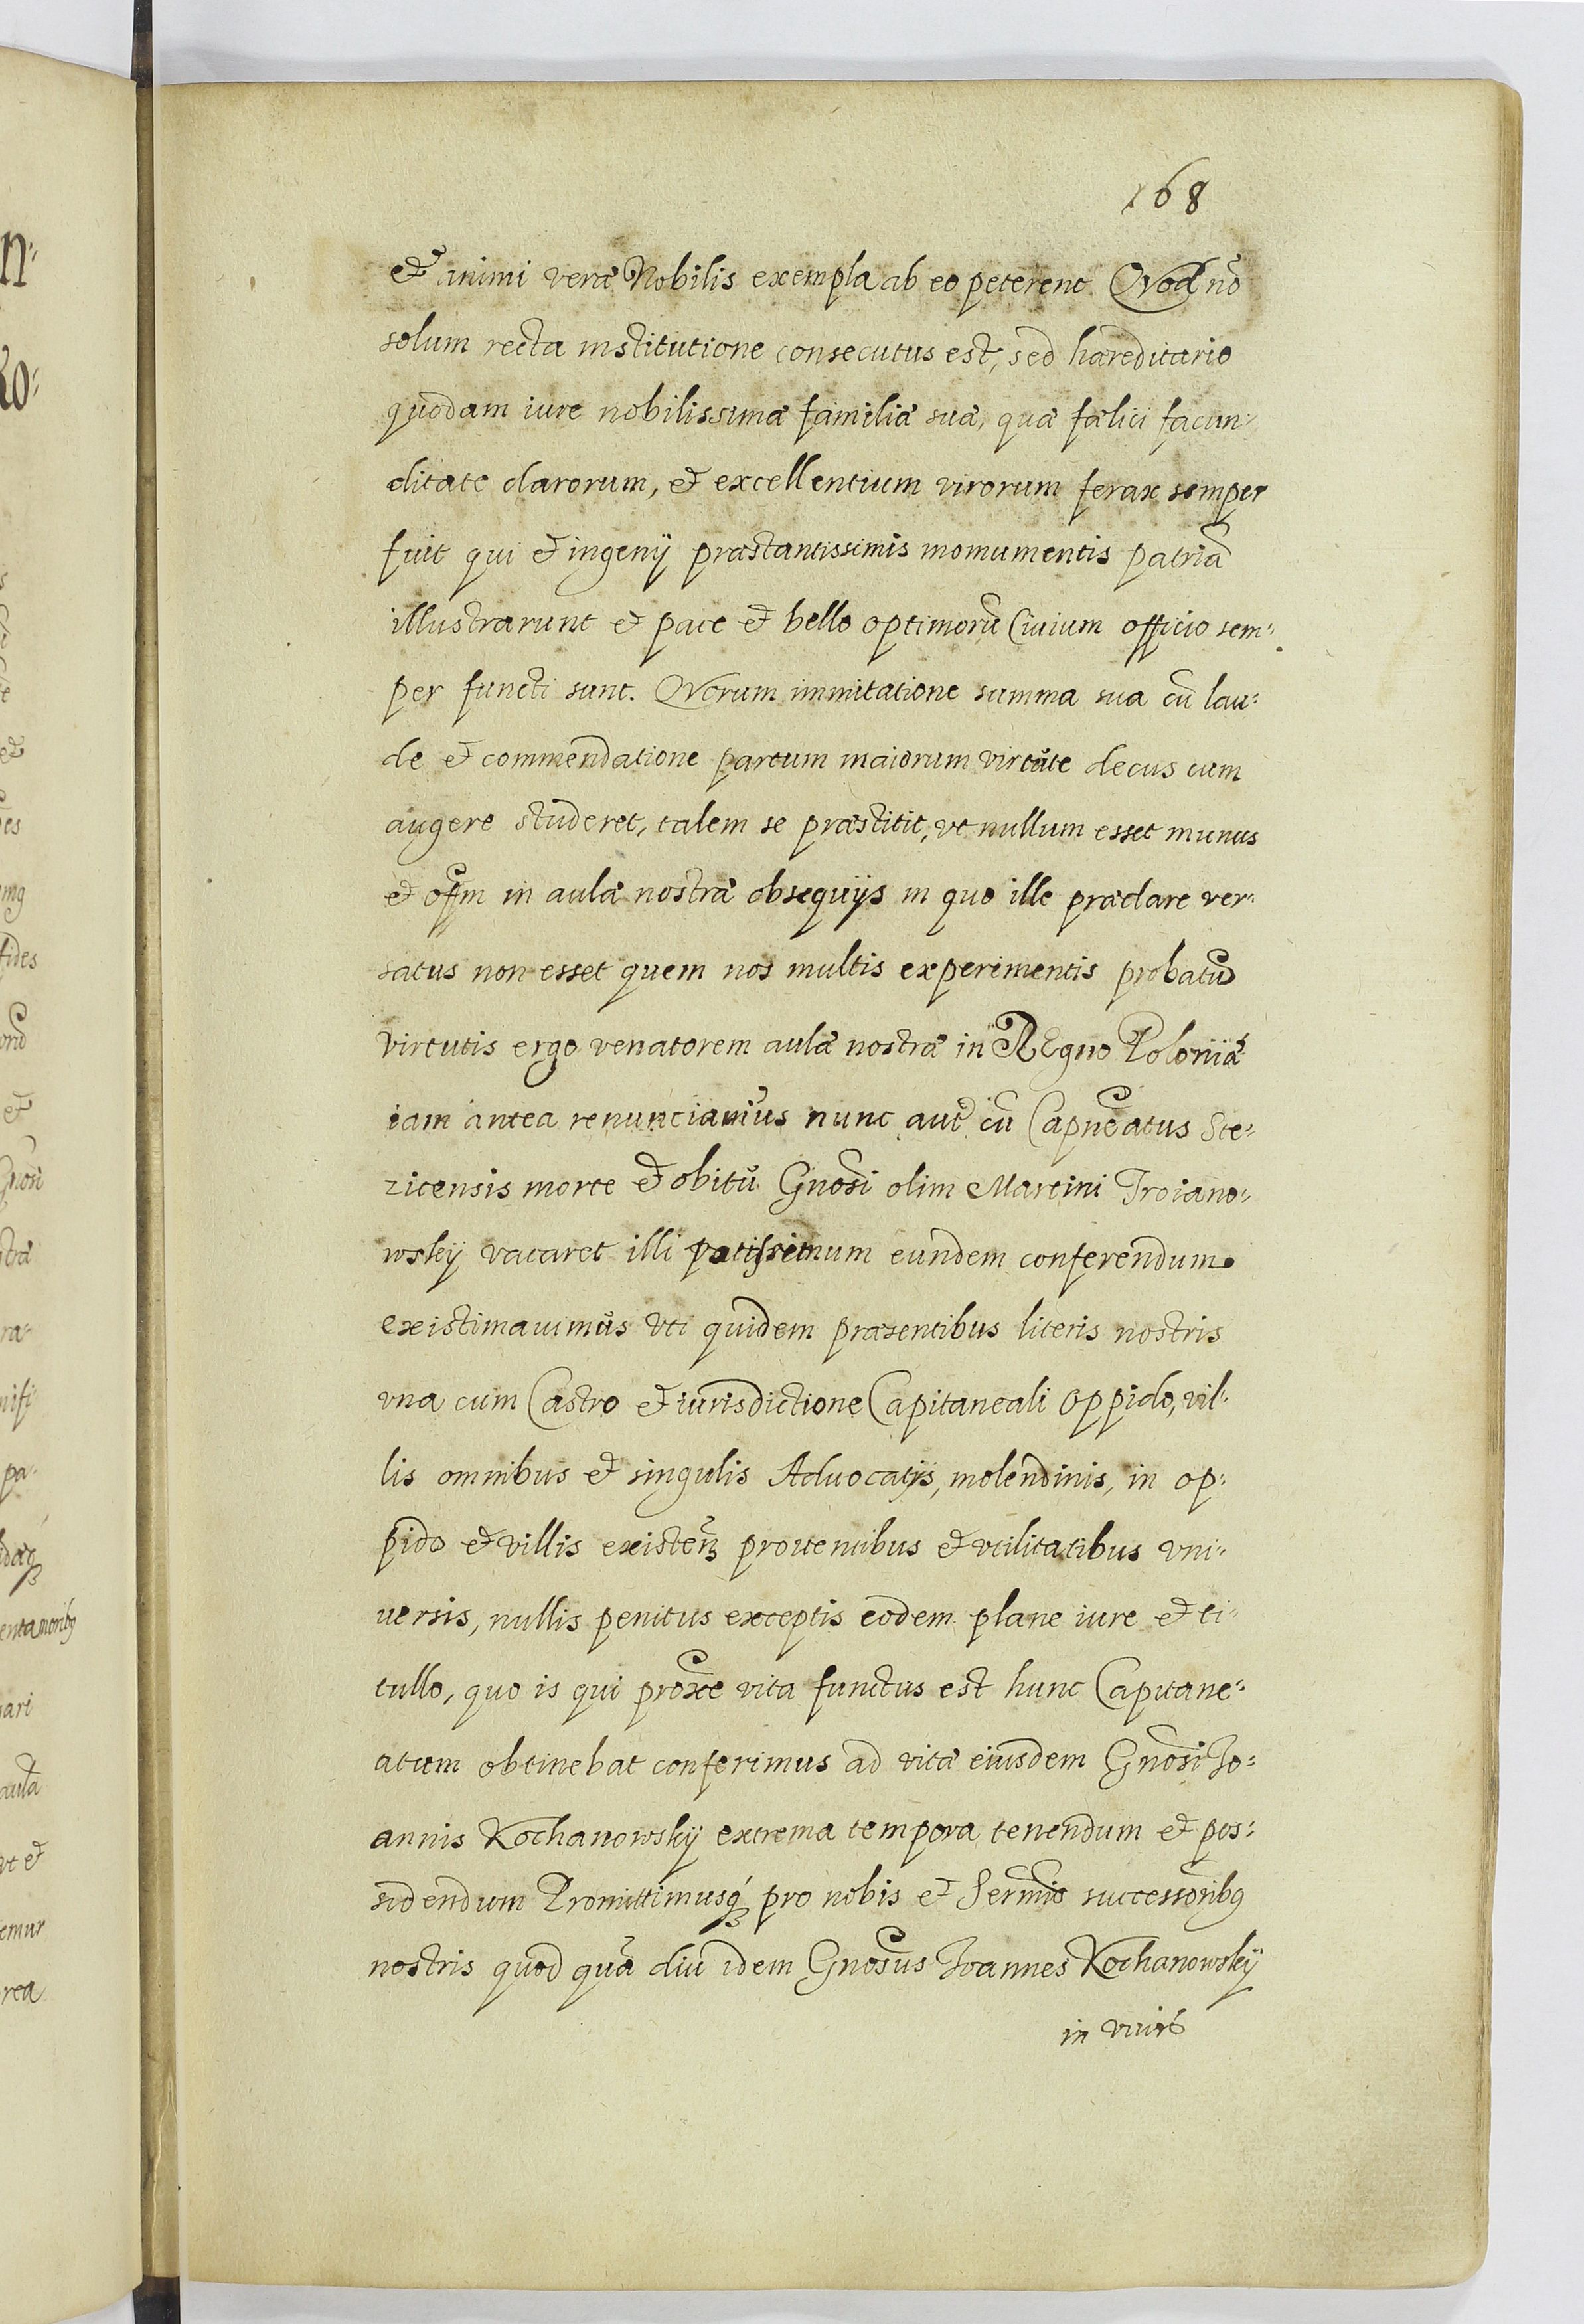 168
et animi veræ Nobilis exempla ab eo peterent Qvod nō
solum recta institutione consecutus est, sed hæreditario
quodam iure nobilissimæ familiæ suæ, quæ fælici facun-
ditate clarorum, et excellentium virorum ferax semper
fuit qui et ingenij præstantissimis momumentis patriā
illustrarunt et pace et bello optimorū Ciuium officio sem-
per functi sunt. Qvorum immitatione summa sua cū lau-
de et commendatione partum maiorum virtute decus cum
augere studeret, talem se præstitit, vt nullum esset munus
et offm in aulæ nostræ obsequijs in quo ille præclare ver-
satus non esset quem nos multis experimentis probatū
virtutis ergo venatorem aulæ nostræ in REgno Poloniæ
iam antea renunciamus nunc aut cū Capneatus Ste-
zicensis morte et obitŭ Gnosi olim Martini Troiano-
wskÿ vacaret illi potissimum eundem conferendum
existimauimŭs vti quidem præsentibus literis nostris
vna cum Castro et iurisdictione Capitaneali oppido, vil-
lis omnibus et singulis Aduocatijs, molendinis, in op-
pido et villis existen prouentibus et vtilitatibus vni-
uersis, nullis penitus exceptis eodem plane iure et ti-
tullo, quo is qui proxe vita functus est hunc Capitane-
atum obtinebat conferimus ad vitæ eiusdem Gnosi Jo-
annis Kochanowskÿ extrema tempora tenendum et pos-
sidendum Promittimusq pro nobis et Sermis successoribq
nostris quod quā diu idem Gnosus Joannes Kochanowskÿ
in viuis
n-
Ro-
et
es
fides
et
Gnosi
stræ
ra-
nifi
pa-
ari
aulæ
vt et
emur
rea